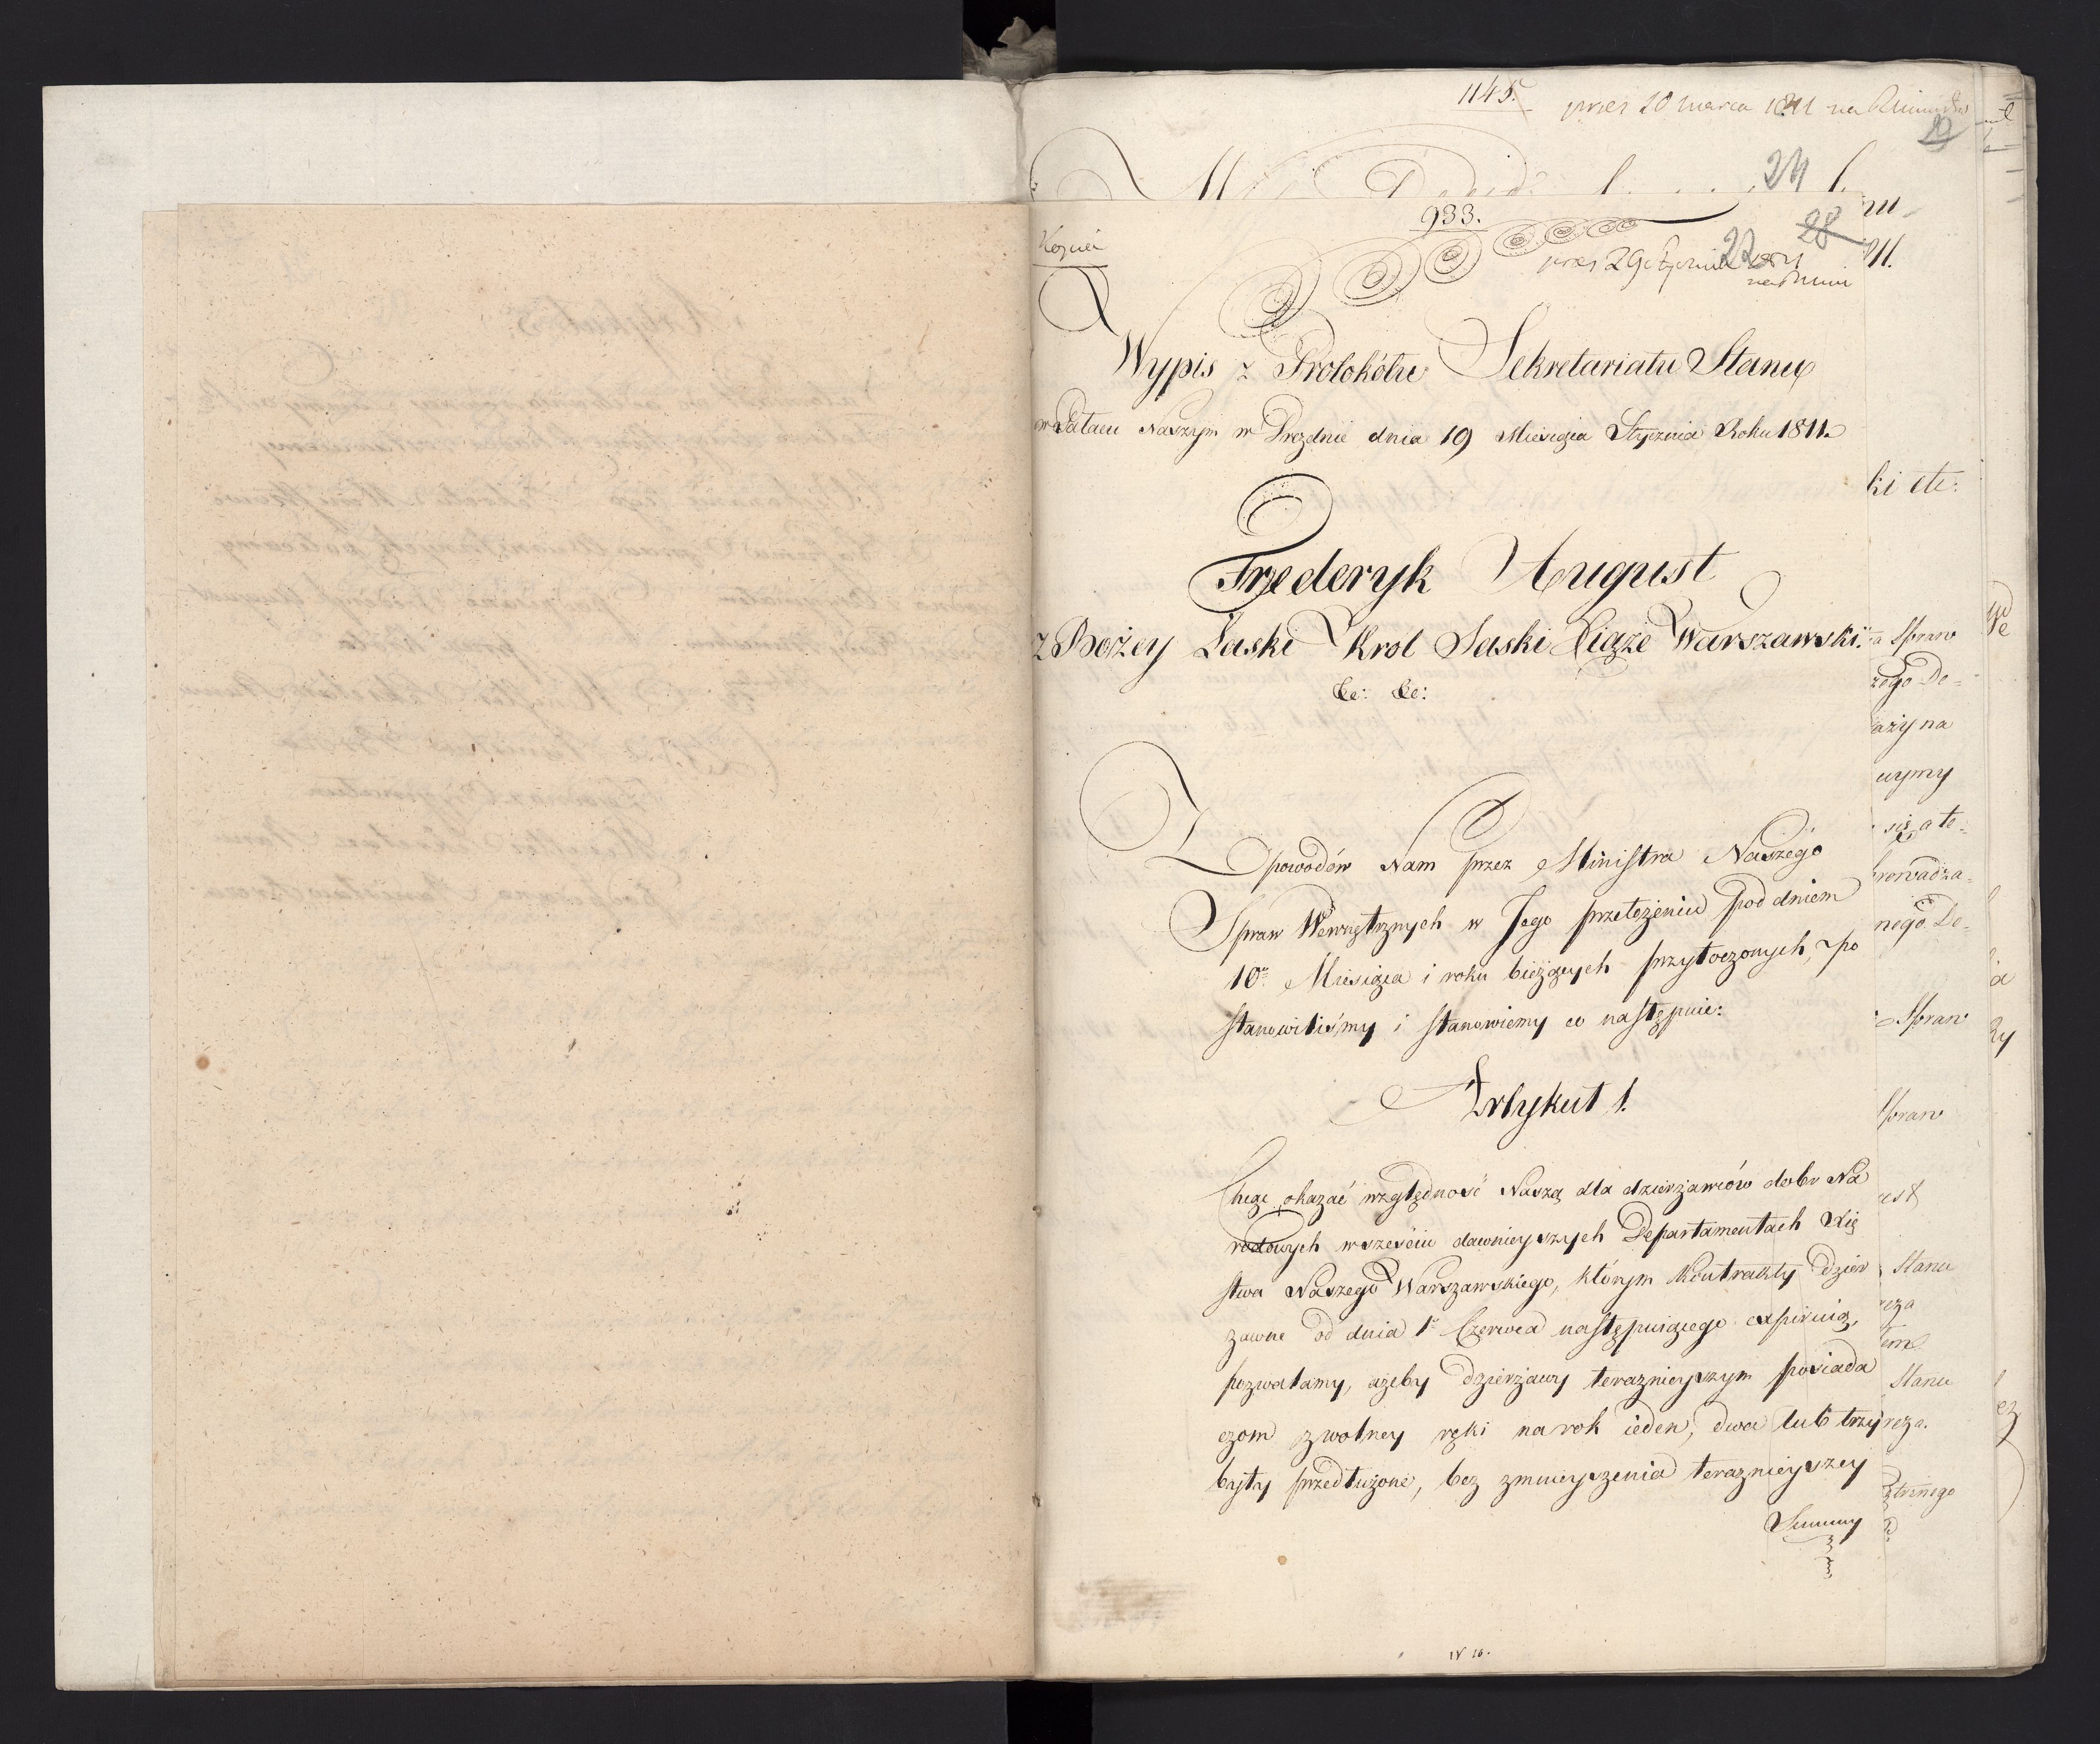 1145.
pres 20 marca 1811 na
29
24
933.
28
Kopiia
22
pres 29 Stycznia 1811
Wypis z Protokółu Sekretariatu Stanu
w Pałacu Naszym w Dreznie dnia 19 Miesiąca Stycznia Roku 1811.
ki etc:
Fryderyk August
z Bożey Łaski Krol Saski Xiąże Warszawski.
&c: &c:
Z powodów Nam przez Ministra Naszego
Spraw Wewnętrznych w Jego przełożeniu pod dniem
10. Miesiąca i roku bieżących przytoczonych, po
stanowiliśmy i stanowiemy co następuie:
Artykuł 1.
Chcąc okazać względność Naszą dla dzierżawców dobr Na
rodowych w sześciu dawnieyszych Departamentach Xię
stwa Naszego Warszawskiego, którym Kontrakty dzier
zawne od dnia 1. Czerwca następuiącego expiruią,
pozwalamy, ażeby dzierżawy teraznieyszym posiada
czom z wolney ręki na rok ieden, dwa lub trzy
były przedłużone, bez zmnieyszenia teraznieyszey
Summy
Spraw
zego De=
ażyna
uymy
się, a te=
prowadza=
nego De=
Spraw
Spraw
ust
Stanu
eza
Stanu
reza.
IV 16.